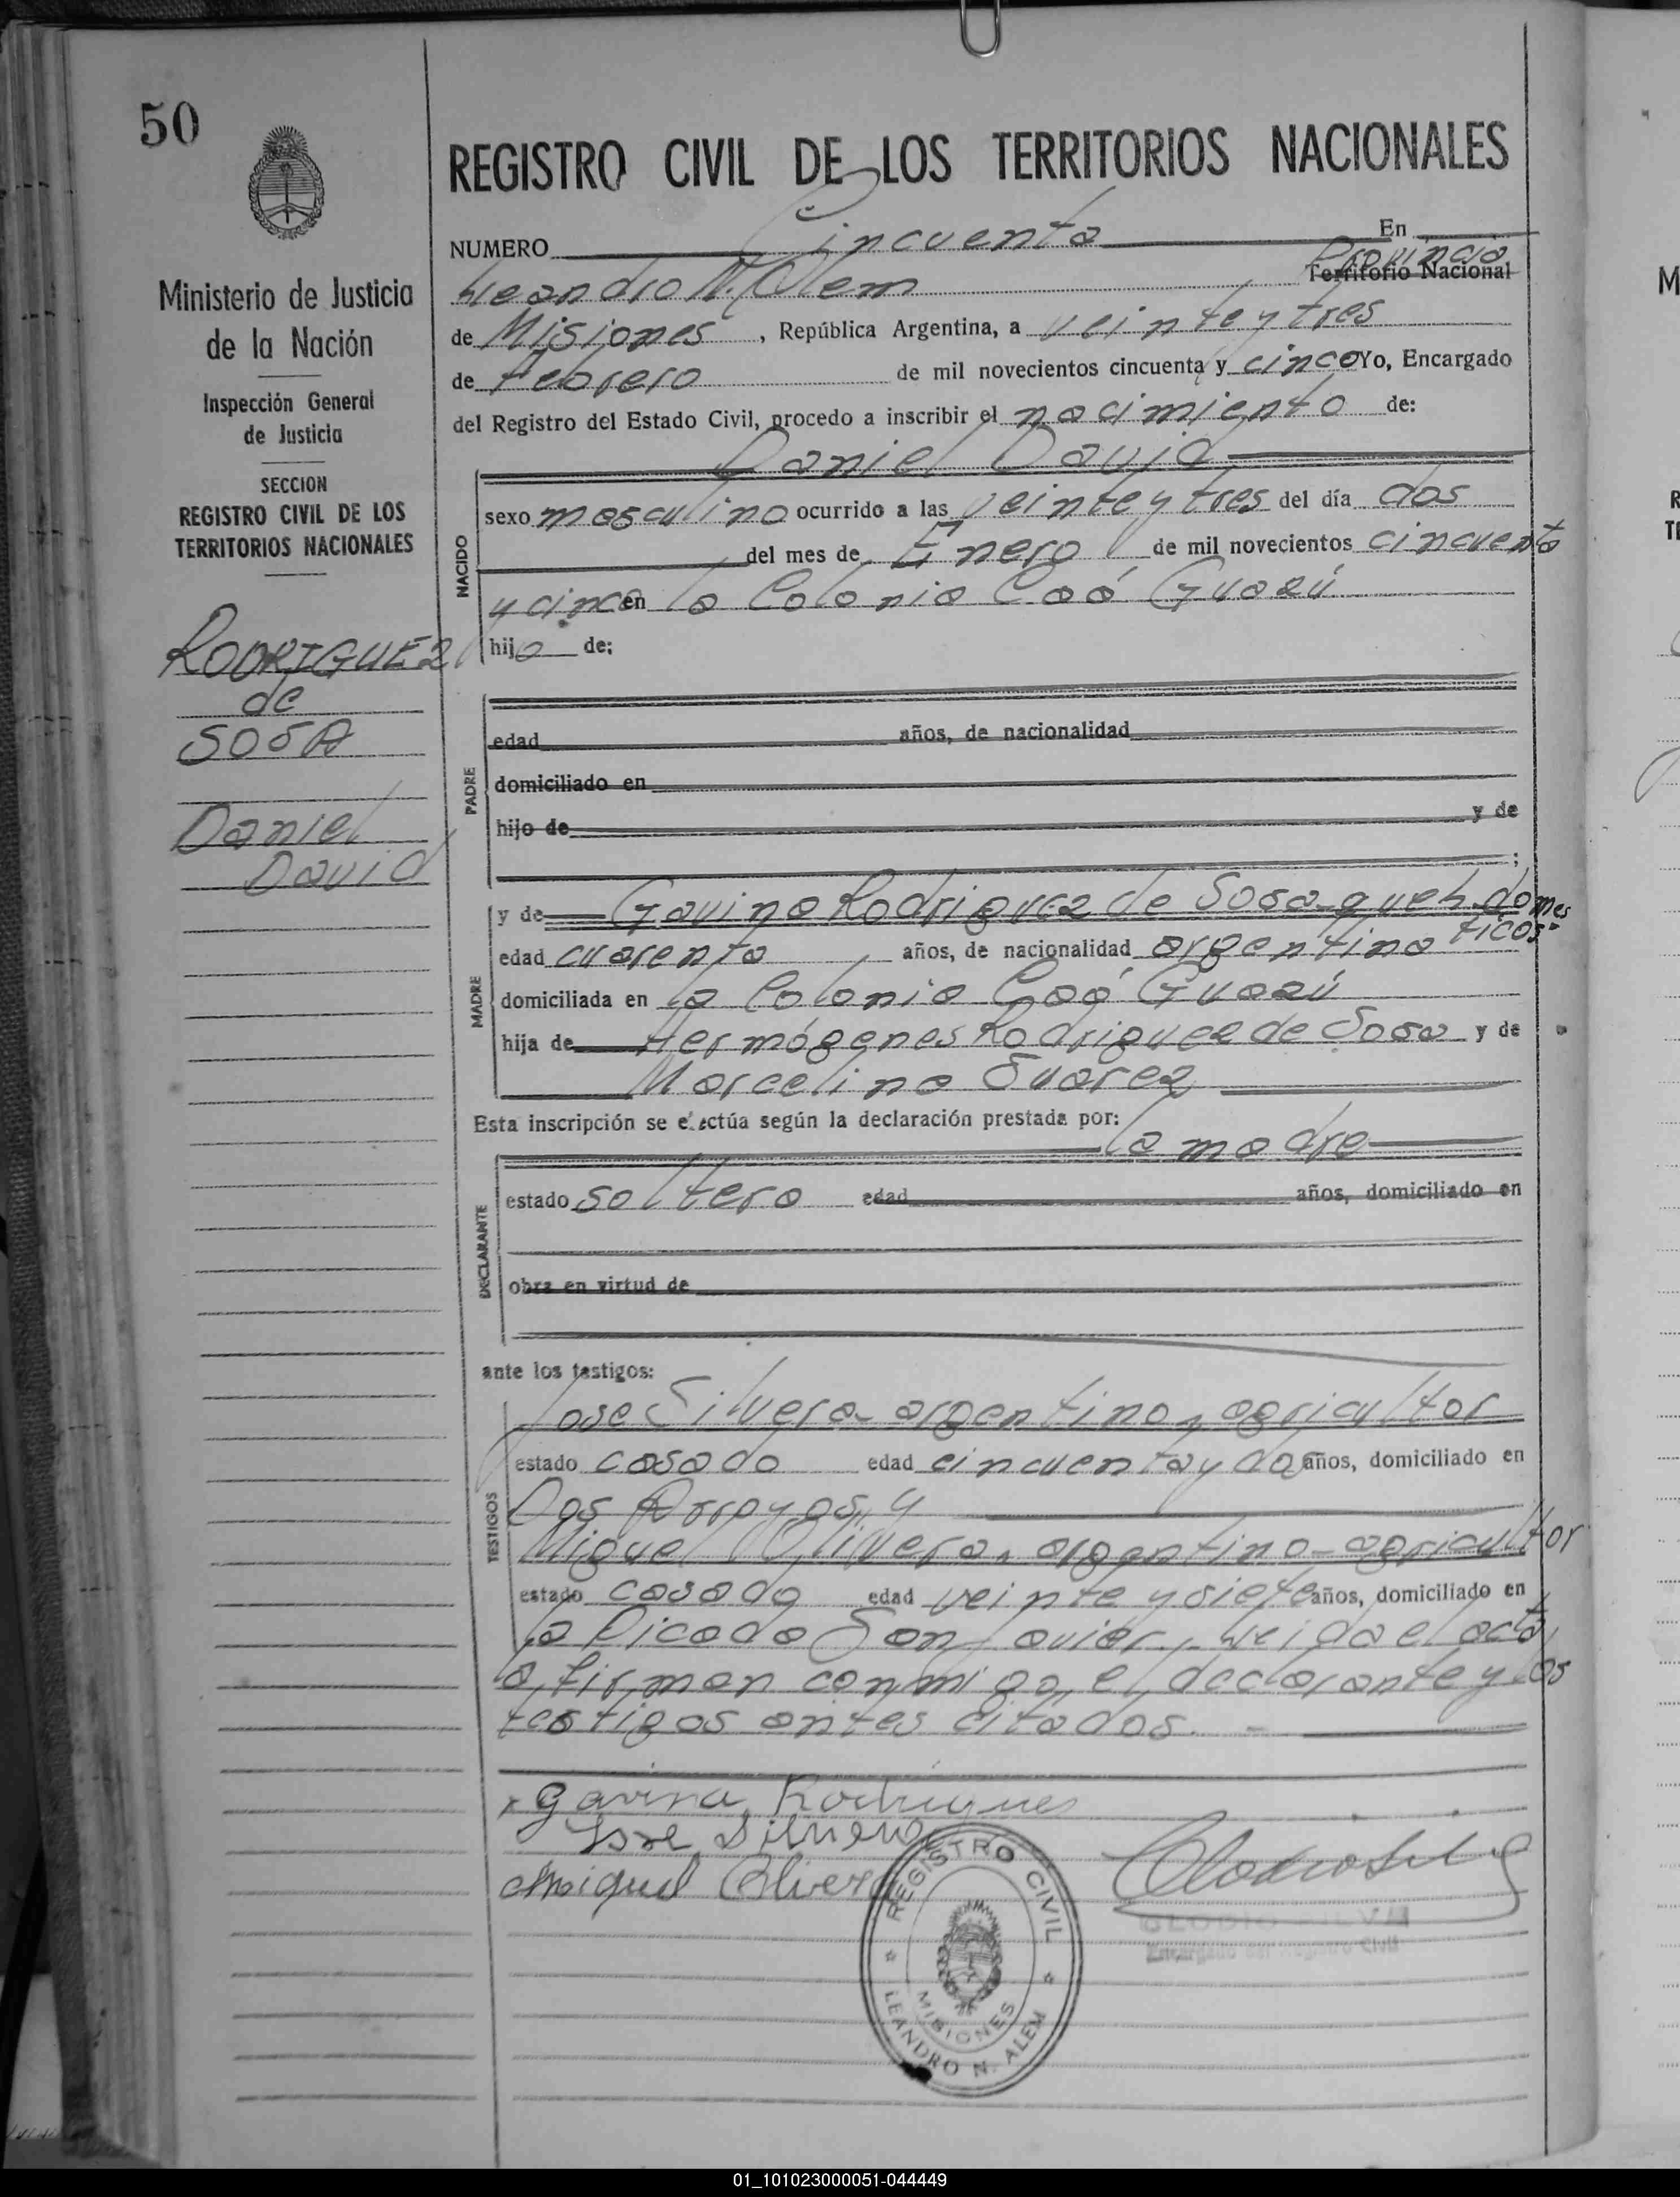 50
REGISTRO CIVIL DE LOS TERRITORIOS NACIONALES
Ministerio de Justicia
de la Nación
Inspección General
de Justicia
SECCION
REGISTRO CIVIL DE LOS
TERRITORIOS NACIONALES
RODRIGUEZ
de
SOSA
Daniel
David
NUMERO Cincuenta En
Leandro N. Alem Provincia Territorio Nacional
de Misiones, República Argentina, a veinte y tres
de Febrero de mil novecientos cincuenta y cinco Yo, Encargado
del Registro del Estado Civil, procedo a inscribir el nacimiento de:
Daniel David
NACIDO
sexo masculino ocurrido a las veinte y tres del día dos
del mes de Enero de mil novecientos cincuenta
y cinco en la Colonia Caá Guazú
hijo de:
PADRE
edad años, de nacionalidad
domiciliado en
hijo de y de
;
MADRE
y de Gavina Rodriguez de Sosa - queh. domes
ticos-
edad cuarenta años, de nacionalidad argentina
domiciliada en la Colonia Caá Guazú
hija de Hermógenes Rodriguez de Sosa y de
Marcelina Suarez
Esta inscripción se efectúa según la declaración prestada por:
la madre
DECLARANTE
estado soltera edad años, domiciliado en
obra en virtud de
ante los testigos:
TESTIGOS
Jose Silvera - argentino - agricultor
estado casado edad cincuenta y dos años, domiciliado en
Dos Arroyos, y
Miguel Olivera - argentino - agricultor
estado casado edad veinte y siete años, domiciliado en
la Picada San Javier - Leida el acta
la firman conmigo, el declarante y los
testigos antes citados. -
Gavina Rodrigues
Jose Silvera
Miguel Olivera
REGISTRO CIVIL
MISIONES
LEANDRO N. ALEM
CLODIO SILVA
Encargado del Registro Civil
01_101023000051-044449